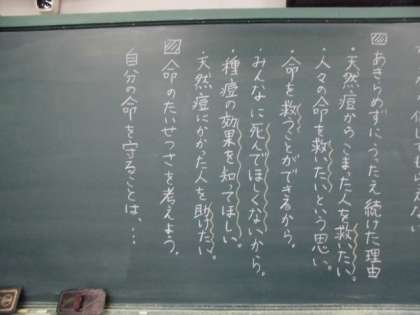 あきらめずに、うったえ続けた理由
・天然痘から こまった人を救いたい。
・人々の命を救いたいという思い。
・命を救うことができるから。
・みんなに死んでほしくないから。
・種痘の効果を知ってほしい。
・天然痘にかかった人を助けたい。
命のたいせつさを考えよう。
自分の命を守ることは、…